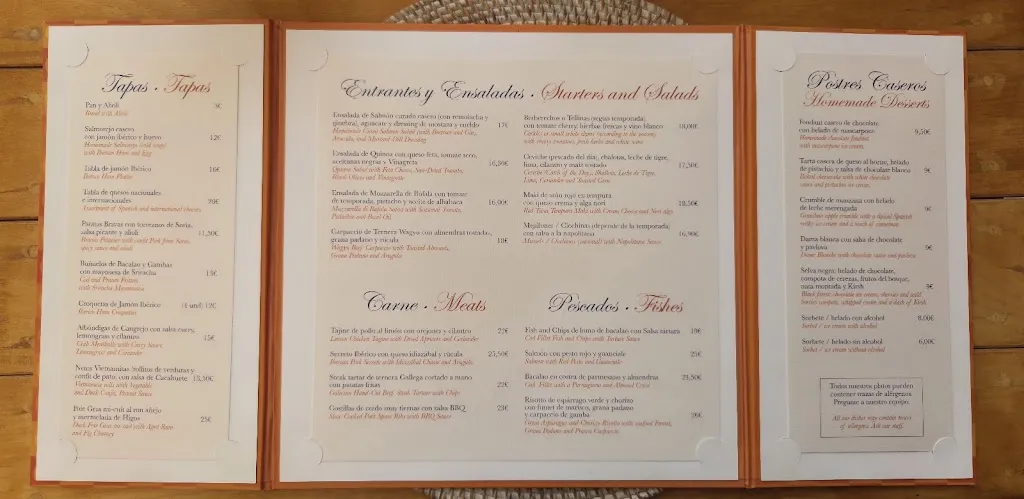 Tapas · Tapas
Pan y Alioli 3€
Bread with Alioli
Salmorejo casero
con jamón ibérico y huevo 12€
Homemade Salmorejo (cold soup)
with Iberian Ham and Egg
Tabla de jamón Ibérico
Iberian Ham Platter
Tabla de quesos nacionales
e internacionales
Assortment of Spanish and international cheeses
Patatas Bravas con torreznos de Soria,
salsa picante y alioli 11,50€
Bravas Potatoes with confit Pork from Soria,
spicy sauce and alioli
Buñuelos de Bacalao y Gambas
con mayonesa de Sriracha
Cod and Prawn Fritters
with Sriracha Mayonnaise
Croquetas de Jamón Ibérico 12€
Iberian Ham Croquettes
Albóndigas de Cangrejo con salsa curry,
lemongrass y cilantro 15€
Crab Meatballs with Curry Sauce
Lemongrass and Coriander
Nems Vietnamitas (rollitos de verduras y
confit de pato) con salsa de Cacahuete 13,50€
Vietnamese rolls with Vegetable
and Duck Confit, Peanut Sauce
Foie Gras mi-cuit al ron añejo
y mermelada de Higos 25€
Duck Foie Gras mi-cuit with Aged Rum
and Fig Chutney
Entrantes y Ensaladas · Starters and Salads
Ensalada de Salmón curado casero (con remolacha y
ginebra), aguacate y dressing de mostaza y eneldo 17€
Homemade Cured Salmon Salad (with Beetroot and Gin),
Avocado and Mustard Dill Dressing
Ensalada de Quinoa con queso feta, tomate seco,
aceitunas negras y Vinagreta 16,50€
Quinoa Salad with Feta Cheese, Sun-Dried Tomato,
Black Olives and Vinaigrette
Ensalada de Mozzarella de Búfala con tomate
de temporada, pistacho y aceite de albahaca 16,00€
Mozzarella di Bufala Salad with Seasonal Tomato,
Pistachio and Basil Oil
Carpaccio de Ternera Wagyu con almendras tostadas,
grana padano y rúcula 18€
Wagyu Beef Carpaccio with Toasted Almonds,
Grana Padano and Arugula
Berberechos o Tellinas (según temporada)
con tomate cherry, hierbas frescas y vino blanco 18,00€
Cockles or small white clams (according to the season)
with cherry tomatoes, fresh herbs and white wine
Ceviche pescado del día, chalotas, leche de tigre,
lima, cilantro y maíz tostado 17,50€
Ceviche (Catch of the Day), Shallots, Leche de Tigre,
Lime, Coriander and Toasted Corn
Maki de atún rojo en tempura
con queso crema y alga nori 18,50€
Red Tuna Tempura Maki with Cream Cheese and Nori alga
Mejillones / Clochinas (depende de la temporada)
con salsa a la napolitana 16,90€
Mussels / Clochinas (seasonal) with Napolitana Sauce
Carne · Meats
Tajine de pollo al limón con orejones y cilantro 21€
Lemon Chicken Tagine with Dried Apricots and Coriander
Secreto Ibérico con queso idiazábal y rúcula 25,50€
Iberian Pork Secreto with Idiazábal Cheese and Arugula
Steak tartar de ternera Gallega cortado a mano
con patatas fritas 22€
Galician Hand-Cut Beef Steak Tartare with Chips
Costillas de cerdo muy tiernas con salsa BBQ 23€
Slow Cooked Pork Spare Ribs with BBQ Sauce
Pescados · Fishes
Fish and Chips de lomo de Bacalao con Salsa tartara 19€
Cod Fillet Fish and Chips with Tartare Sauce
Salmón con pesto rojo y guanciale 25€
Salmon with Red Pesto and Guanciale
Bacalao en costra de parmesano y almendras 24,50€
Cod Fillet with a Parmigiano and Almond Crust
Risotto de espárrago verde y chorizo
con fumet de marisco, grana padano
y carpaccio de gamba 26€
Green Asparagus and Chorizo Risotto with seafood Fumet,
Grana Padano and Prawn Carpaccio
Postres Caseros
Homemade Desserts
Fondant casero de chocolate
con helado de mascarpone 9,50€
Homemade chocolate fondant
with mascarpone ice cream
Tarta casera de queso al horno, helado
de pistacho y salsa de chocolate blanco 9€
Baked cheesecake with white chocolate
sauce and pistachio ice cream
Crumble de manzana con helado
de leche merengada
Dama blanca con salsa de chocolate
y pavlova 9€
Dame Blanche with chocolate sauce and pavlova
Selva negra: helado de chocolate,
compota de cerezas, frutos del bosque,
nata montada y Kirsh
Black forest: chocolate ice cream, cherries and wild
berries compote, whipped cream and a dash of Kirsh
Sorbete / helado con alcohol 8,00€
Sorbet / ice cream with alcohol
Sorbete / helado sin alcohol 6,00€
Sorbet / ice cream without alcohol
Todos nuestros platos pueden
contener trazas de alérgenos.
Pregunte a nuestro equipo.
All our dishes may contain traces
of allergens. Ask our staff.